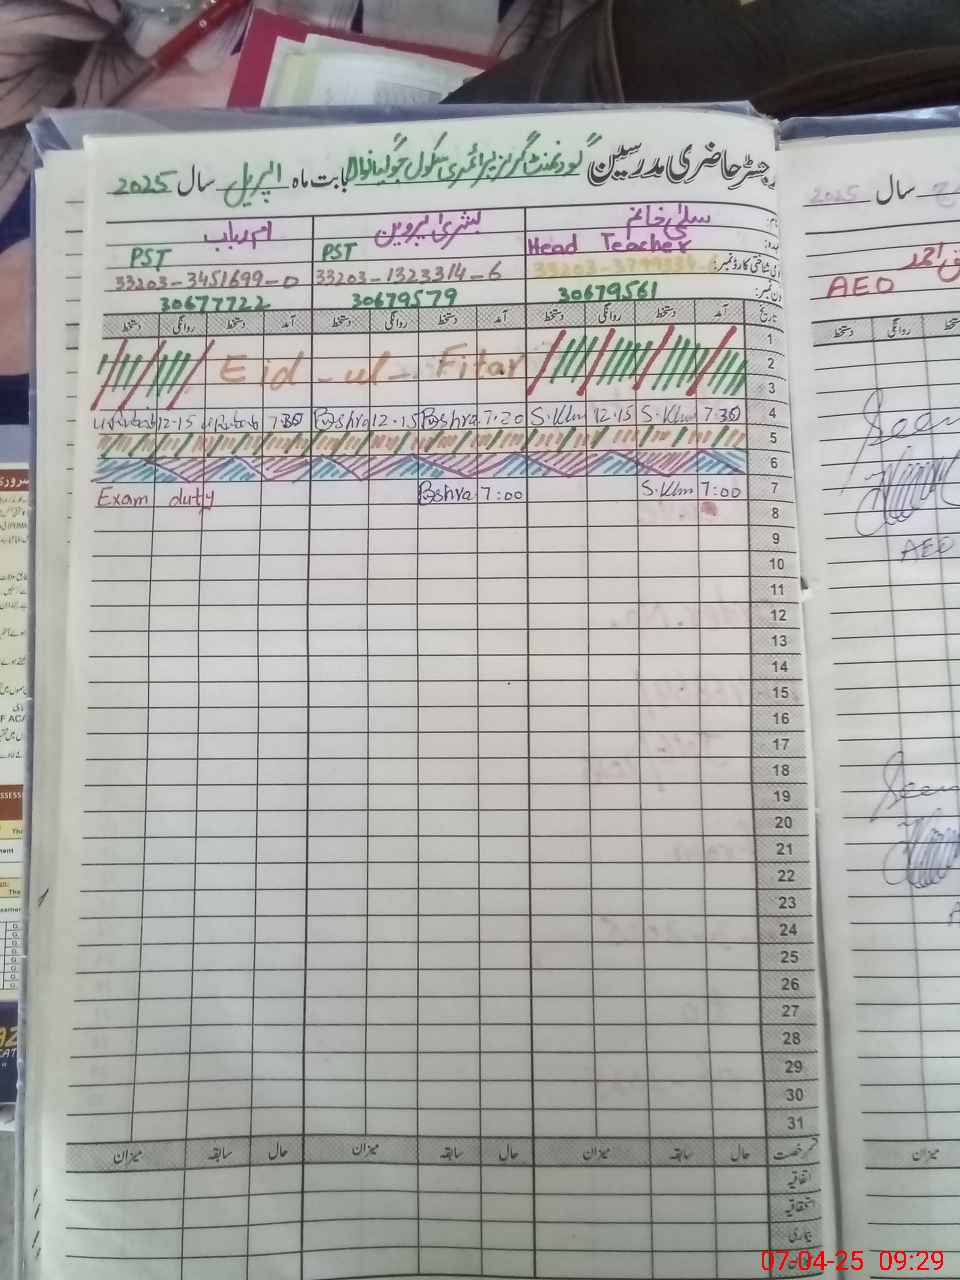 رجسٹر حاضری مدرسین گورنمنٹ گرلز پرائمری سکول جوگیانوالا بابت ماہ اپریل سال 2025
سلمیٰ خانم بشریٰ پروین ام رباب
Head Teacher PST PST
شناختی کارڈ نمبر: 33203-1323314-6 33203-3451699-0
30679561 30679579 30677722
تاریخ آمد دستخط روانگی دستخط آمد دستخط روانگی دستخط آمد دستخط روانگی دستخط
1
2 Eid-ul-Fitar
3
4 7:30 S.Khm 12-15 S.Khm 7:20 Bshra 12-15 Bshra 7:30 12-15
5
6
7 7:00 S.Khm 7:00 Bshra Exam duty
8
9
10
11
12
13
14
15
16
17
18
19
20
21
22
23
24
25
26
27
28
29
30
31
قسم رخصت حال سابقہ میزان حال سابقہ میزان حال سابقہ میزان
اتفاقیہ
استحقاقیہ
بیماری
سال 2025
AEO
دستخط روانگی
AEO
میزان
07-04-25 09:29